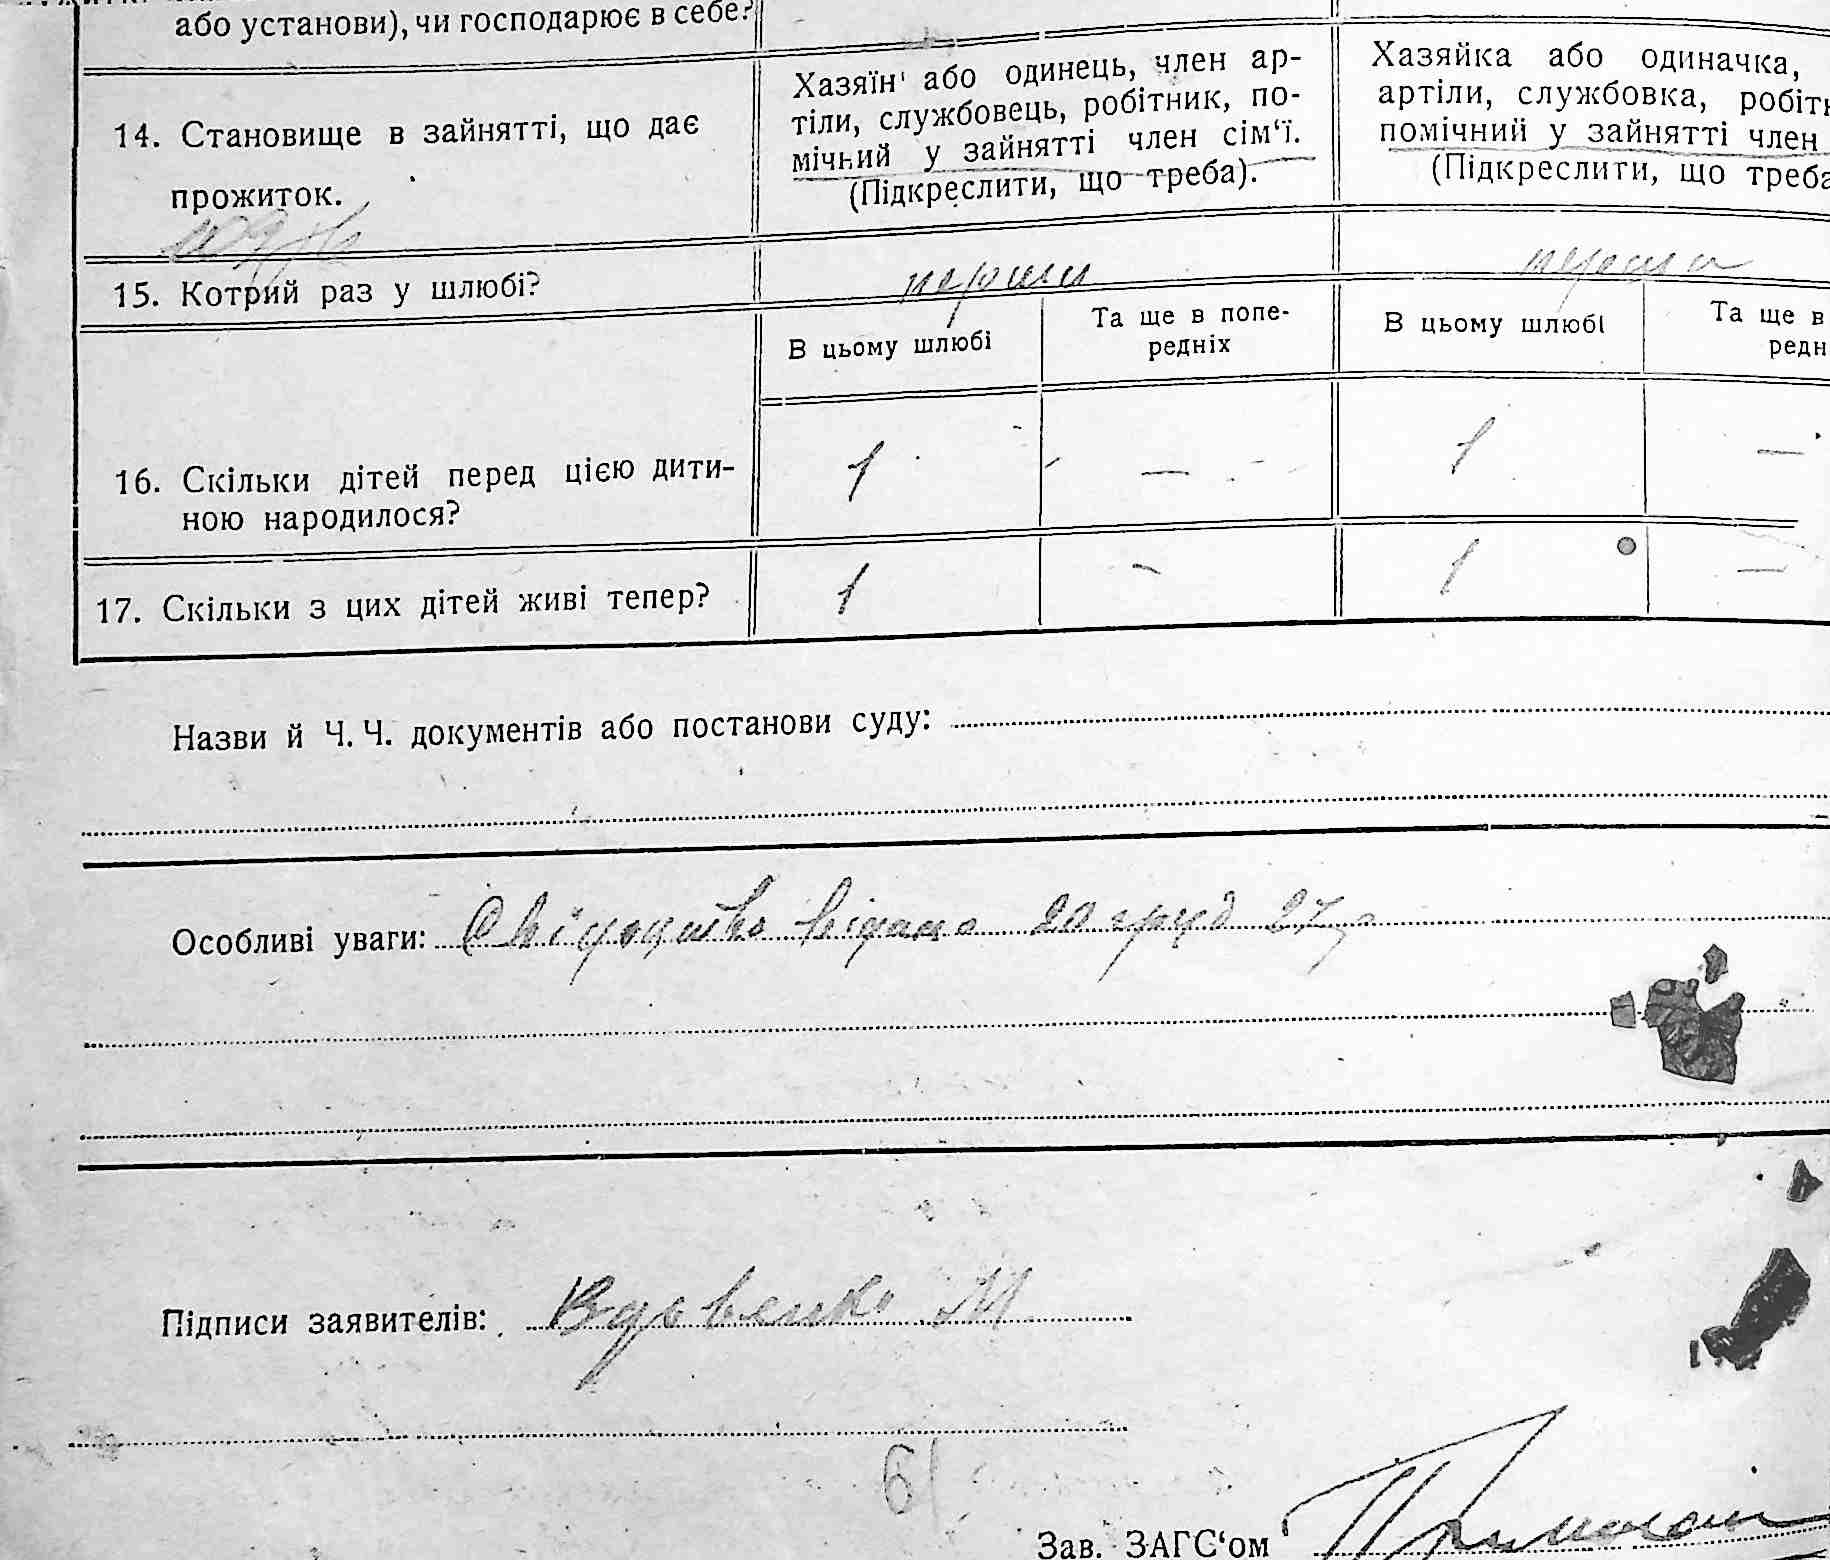 або установи), чи господарює в себе?
14. Становище в зайнятті, що дає
прожиток.
Хазяїн або одинець, член ар-
тіли, службовець, робітник, по-
мічний у зайнятті член сім‘ї.
(Підкреслити, що треба).
Хазяйка або одиначка,
артіли, службовка, робітн
помічний у зайнятті член
(Підкреслити, що треба
15. Котрий раз у шлюбі?
перший
перший
В цьому шлюбі
Та ще в попе-
редніх
В цьому шлюбі
Та ще в
редн
16. Скільки дітей перед цією дити-
ною народилося?
1 — 1 —
17. Скільки з цих дітей живі тепер?
1 — 1 —
Назви й Ч. Ч. документів або постанови суду:
Особливі уваги: Свідоцтво видано 20 груд 27 р
Підписи заявителів: Вдовенко М
61
Зав. ЗАГС‘ом